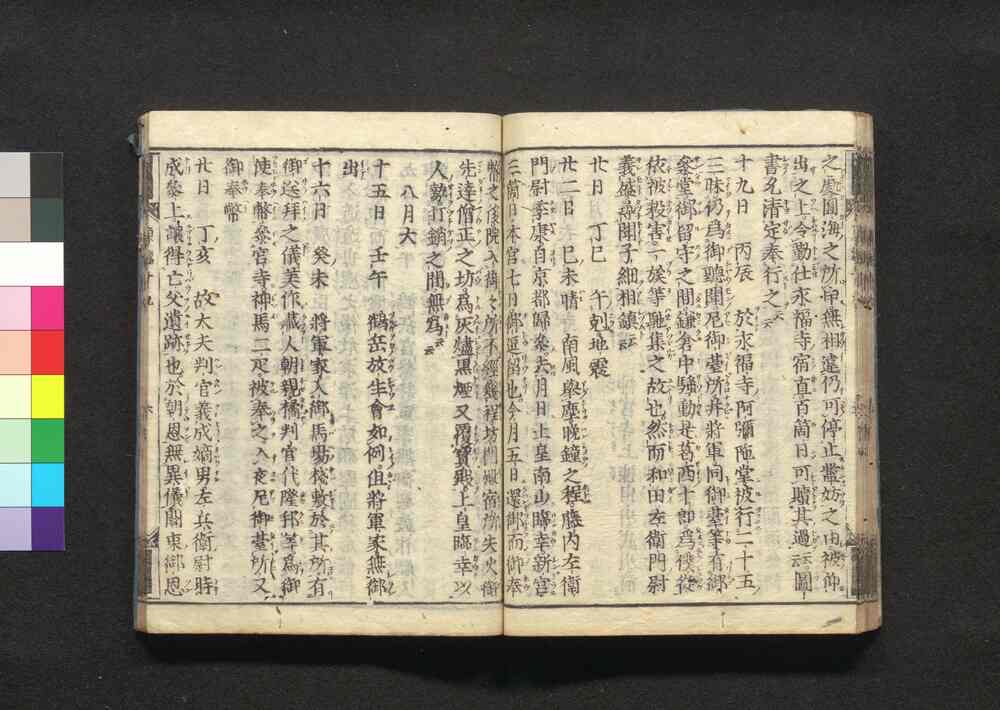 之處圓海之所申無相違仍可停止濫妨之由被仰
出之上令勤仕永福寺宿直百箇日可贖其過云云圖
書允清定奉行之云云
十九日　丙辰　於永福寺阿彌陀堂被行二十五
三昧仍爲御聽聞尼御臺所并將軍同御臺等有御
參堂御留守之間鎌倉中騷動是葛西十郎爲僕從
依被殺害一族等馳集之故也然而和田左衛門尉
義盛尋聞子細相鎮云云
廿日　丁巳　午剋地震
廿二日　己未晴　南風擧塵晩鐘之程藤内左衛
門尉季康自京都歸參去月日上皇南山臨幸新宮
三箇日本宮七日御逗留也今月五日還御而御奉
幣之後院入御之所不經幾程坊門殿宿所失火衛
先達僧正之坊爲灰燼黒煙又覆寶殿上皇臨幸以
人勢打銷之間無爲云云
八月大
十五日　壬午　鶴岳放生會如例但將軍家無御
出
十六日　癸未　將軍家入御馬場棧敷於其所有
御遙拜之儀美作藏人朝親橘判官代隆邦等爲御
使奉幣參宮寺神馬二疋被奉之入夜尼御臺所又
御奉幣
廿日　丁亥　故大夫判官義成嫡男左兵衛尉時
成參上讓得亡父遺跡也於朝恩無異儀關東御恩